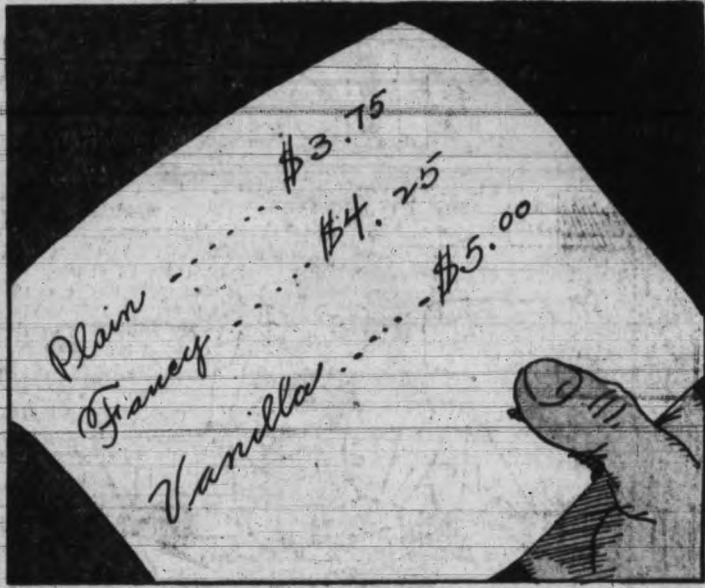 Plain ------- $3.75
Fancy ------ $4.25
Vanilla ------- $5.00